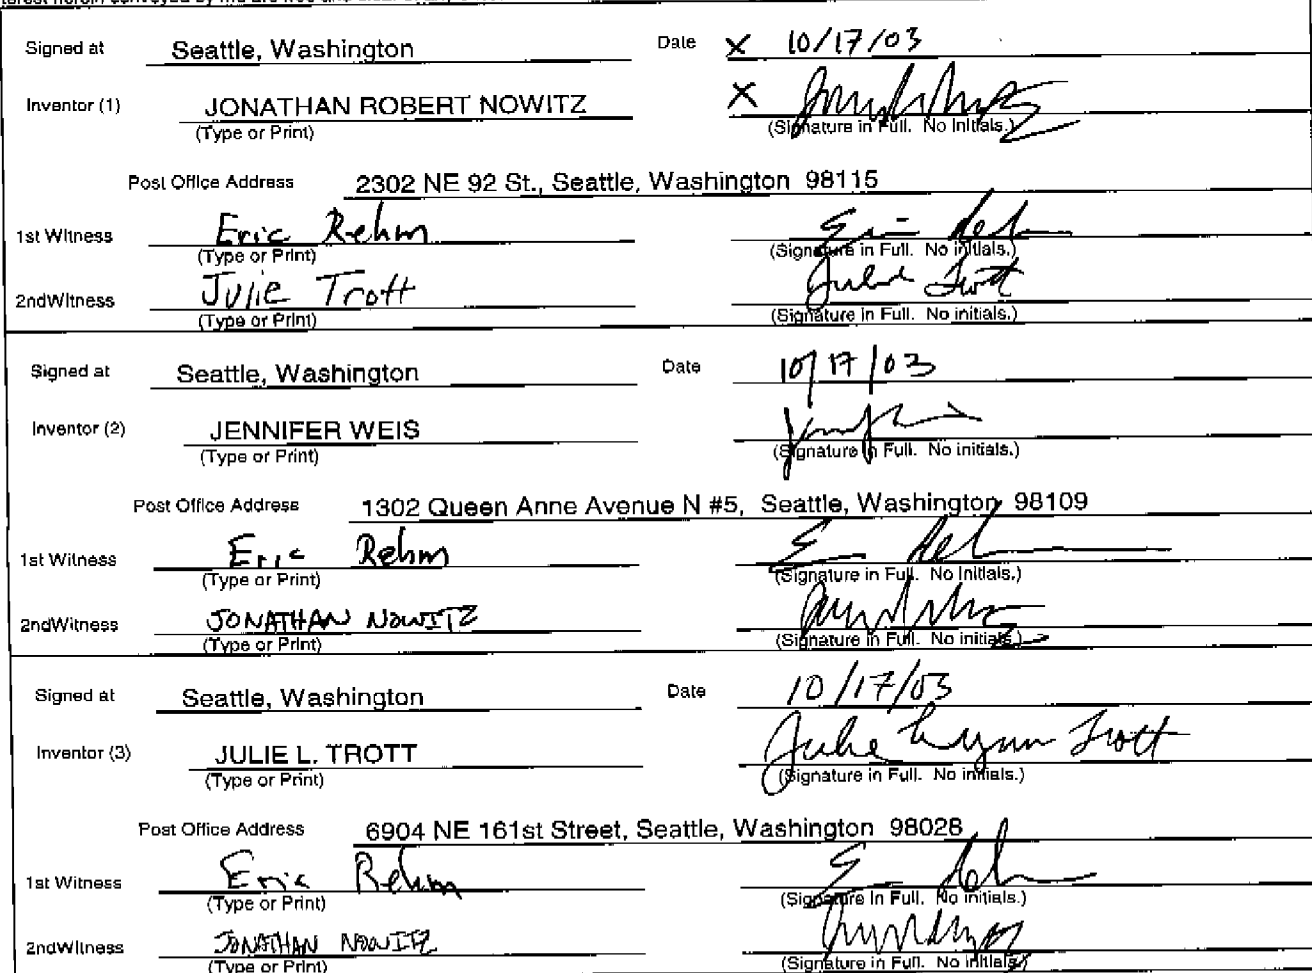 Signed at Seattle, Washington Date X 10/17/03
Inventor (1) JONATHAN ROBERT NOWITZ X
(Type or Print) (Signature in Full. No Initials.)
Post Office Address 2302 NE 92 St., Seattle, Washington 98115
1st Witness Eric Rehm
(Type or Print) (Signature in Full. No initials.)
2ndWitness Julie Trott Julie Trott
(Type or Print) (Signature in Full. No initials.)
Signed at Seattle, Washington Date 10/17/03
Inventor (2) JENNIFER WEIS
(Type or Print) (Signature in Full. No initials.)
Post Office Address 1302 Queen Anne Avenue N #5, Seattle, Washington 98109
1st Witness Eric Rehm
(Type or Print) (Signature in Full. No Initials.)
2ndWitness JONATHAN NOWITZ
(Type or Print) (Signature in Full. No initials.)
Signed at Seattle, Washington Date 10/17/03
Inventor (3) JULIE L. TROTT Julie Lynn Trott
(Type or Print) (Signature in Full. No initials.)
Post Office Address 6904 NE 161st Street, Seattle, Washington 98028
1st Witness Eric Rehm
(Type or Print) (Signature in Full. No initials.)
2ndWitness JONATHAN NOWITZ
(Type or Print) (Signature in Full. No initials.)